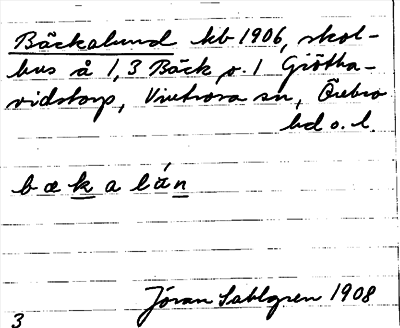 Bäckalund kb 1906, skol-
hus å 1,3 Bäck o. 1 Giötha-
vidstorp, Vintrosa sn, Örebro
hd o. l.
b æ k a lá n
Jöran Sahlgren 1908
3